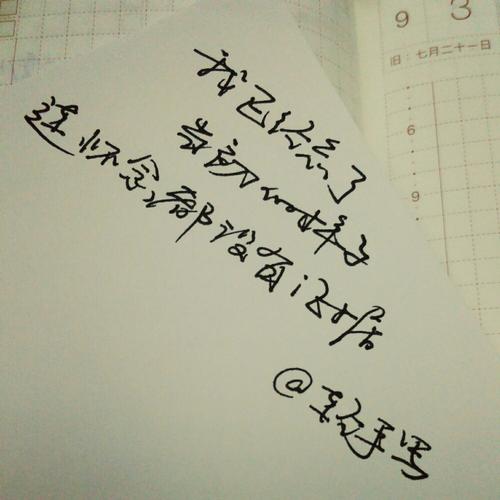 9 3
旧：七月二十一日
6
9
我已经忘了
当初的样子
连怀念都没有证据
@手写